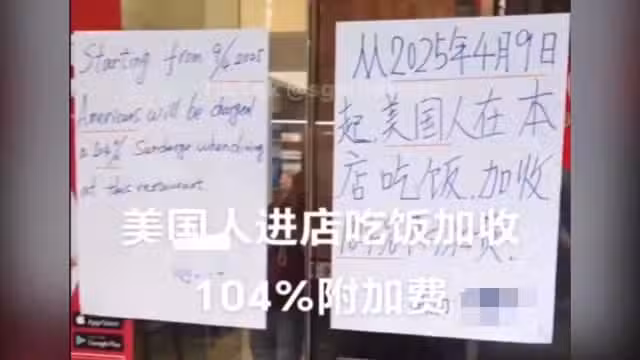 Starting from 9/4 2025
Americans will be charged
a 104% Surcharge when dining
at this restaurant.
从2025年4月9日
起,美国人在本
店吃饭,加收
美国人进店吃饭加收
104%附加费
App Store
Google Play